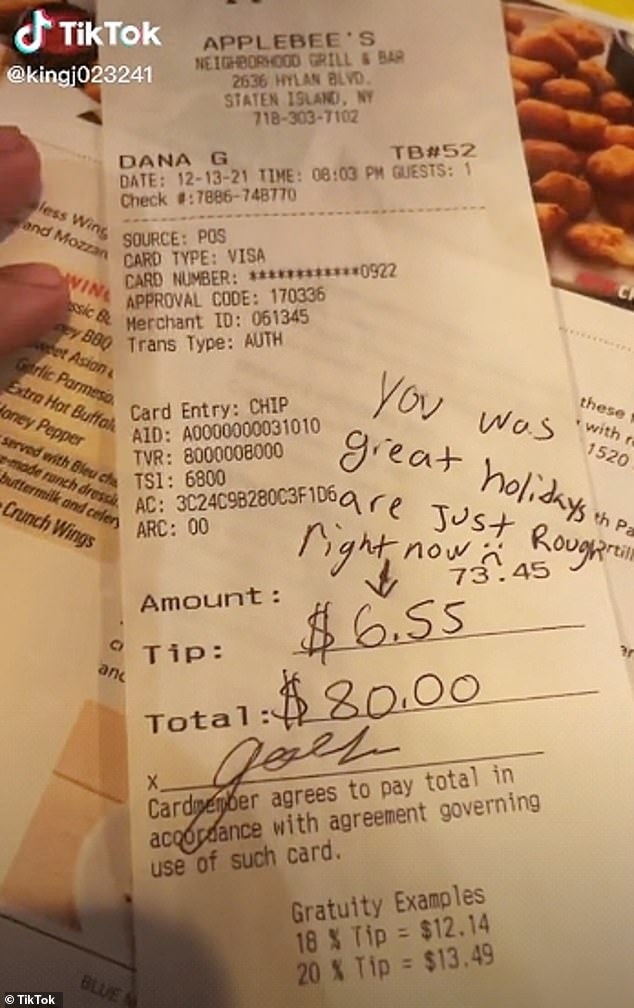 TikTok
@kingj023241
APPLEBEE'S
NEIGHBORHOOD GRILL & BAR
2636 HYLAN BLVD.
STATEN ISLAND, NY
718-303-7102
DANA G TB#52
DATE: 12-13-21 TIME: 08:03 PM GUESTS: 1
Check #:7886-748770
SOURCE: POS
CARD TYPE: VISA
CARD NUMBER: ************0922
APPROVAL CODE: 170336
Merchant ID: 061345
Trans Type: AUTH
Card Entry: CHIP
AID: A0000000031010
TVR: 8000008000
TSI: 6800
AC: 3C24C9B280C3F1D6
ARC: 00
You was
great holidays
are Just Rough
right now
Amount: 73.45
Tip: $6.55
Total: $80.00
X
Cardmember agrees to pay total in
accordance with agreement governing
use of such card.
Gratuity Examples
18 % Tip = $12.14
20 % Tip = $13.49
less Wing
and Mozza
WIN
Sweet Asian
Garlic Parmesa
Extra Hot Buffal
Honey Pepper
served with Bleu ch
buttermilk and celery
Crunch Wings
these
with
1520
BLUE
© TikTok